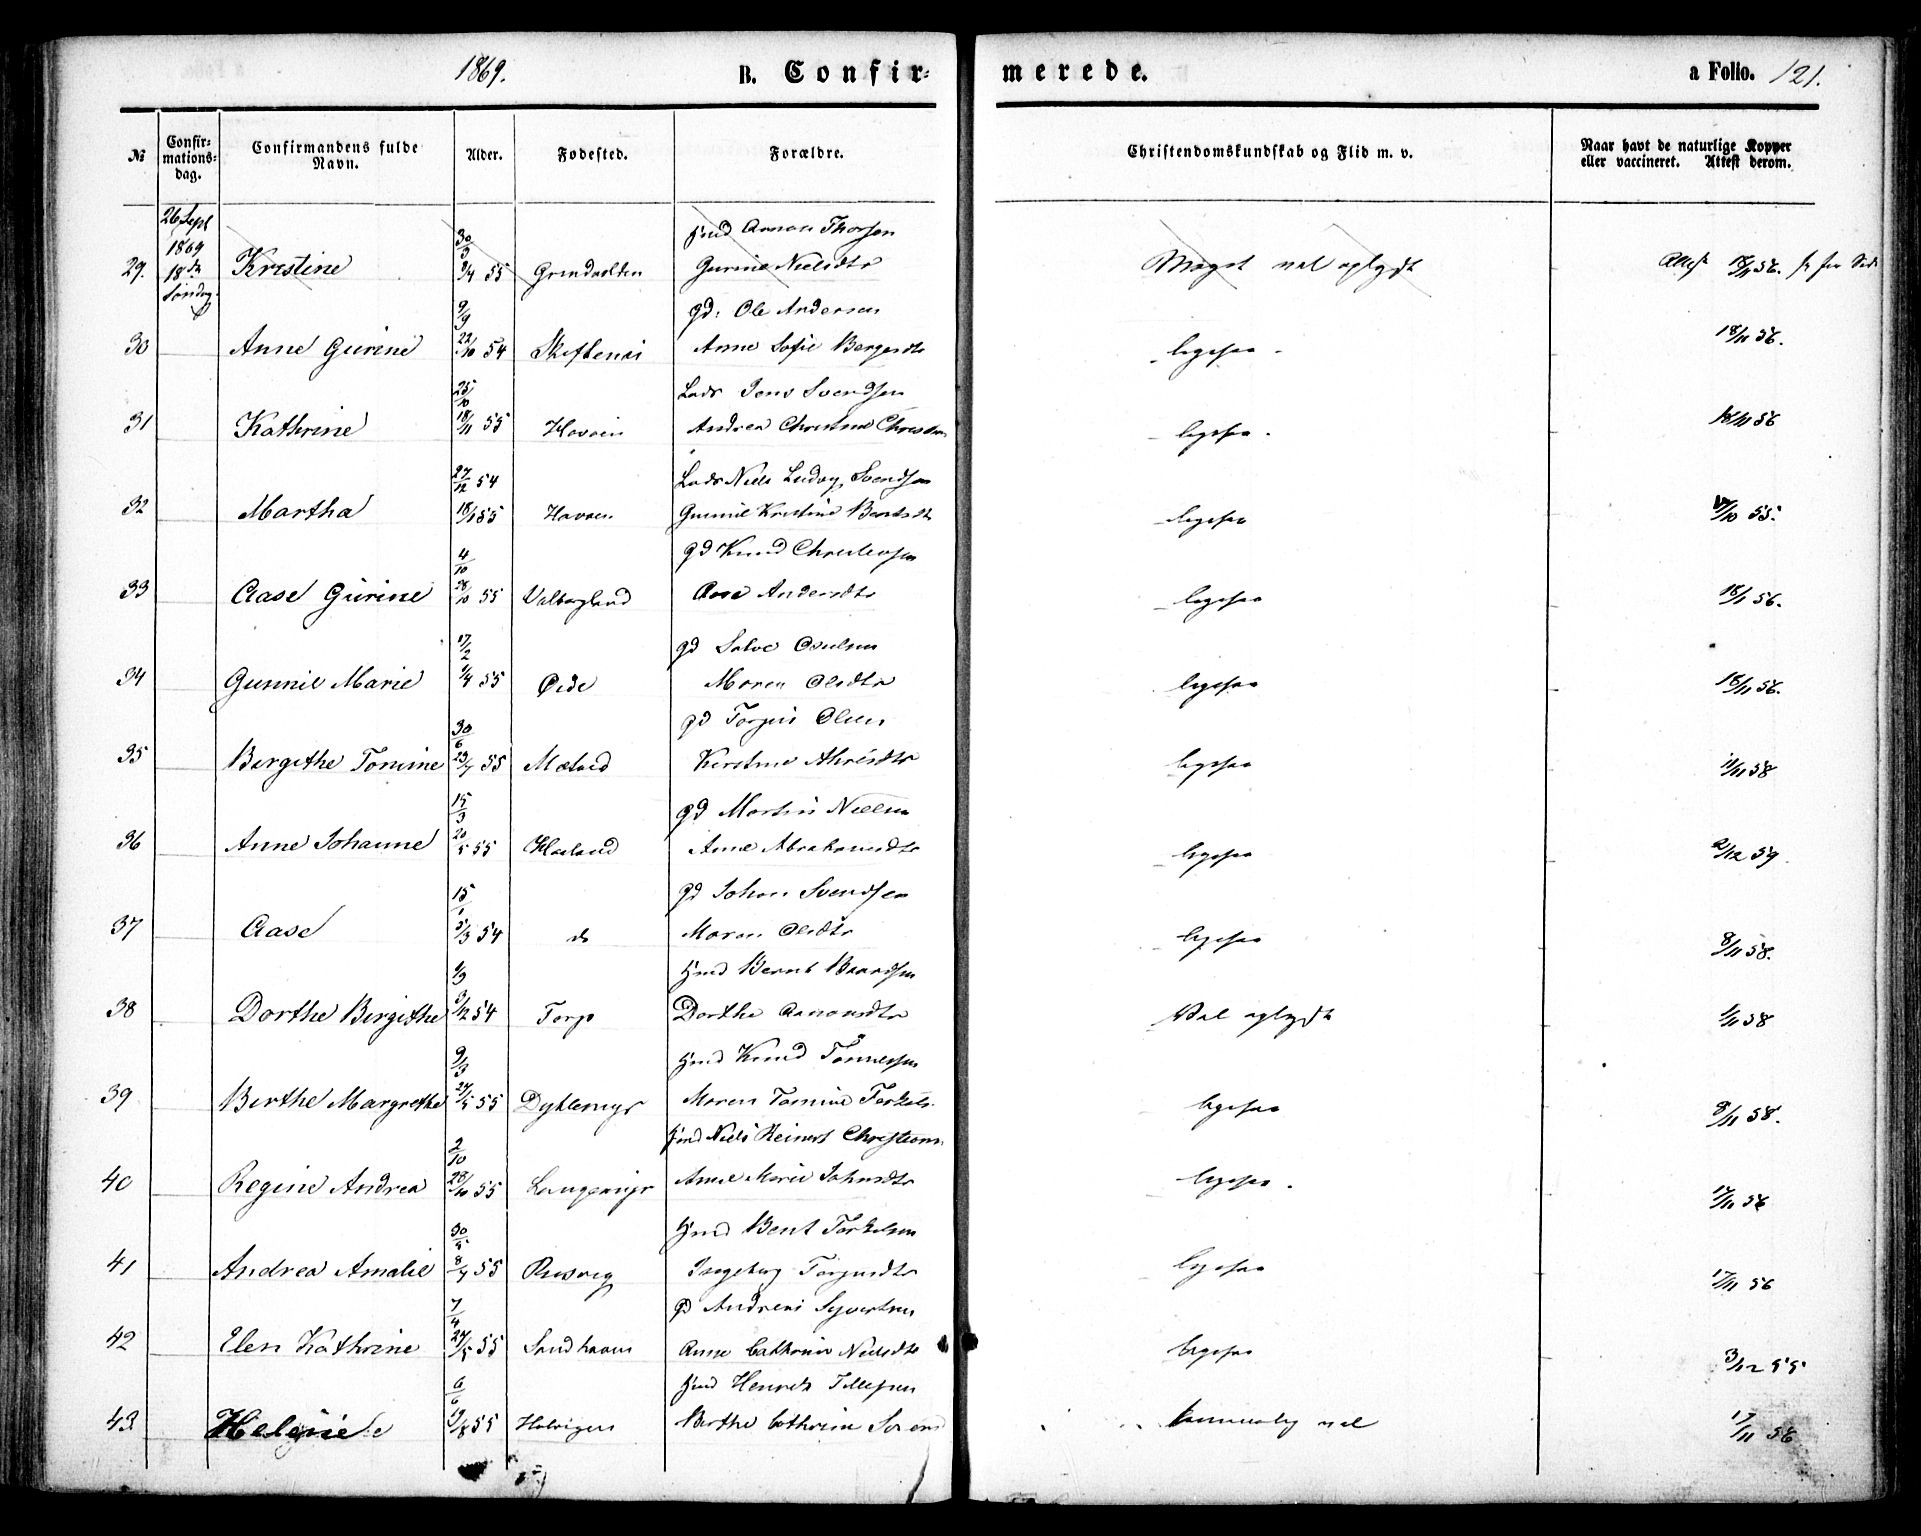 1869.
B. Confir-
merede.
a Folio. 121.
№
Confir-
mations-
dag.
Confirmandens fulde
Navn.
Alder.
Fødested.
Forældre.
Christendomskundskab og Flid m. v.
Naar havt de naturlige Kopper
eller vaccineret. Attest derom.
26 Sept
1869
18de
Søndag
29. Kristine 30/3 9/4 55 Grindvolden
Hmd Aanon Thorsen
Gurine Nielsdtr
Meget vel oplyst
Attest 18/11 56.
30 Anne Gurine 9/9 22/10 54 Skiftenes
gd. Ole Andersen
Anne Sofie Bergesdtr
ligesaa 18/11 56.
31 Kathrine 25/10 18/11 55 Havaen
Lods Jens Svendsen
Andrea Christine
ligesaa 18/11 56
32 Martha 27/12 54 18/1 55 Havaen
Lods Niels Ludvig Svendsen
Gunnil Kristine
ligesaa 17/10 55.
33 Aase Gurine 4/10 28/10 55 Valborgland
gd Knud Christensen
Aase Andersdtr
ligesaa 18/11 56.
34 Gunnil Marie 17/2 1/4 55 Øide
gd Salve Osulsen
Maren Olsdtr
ligesaa 18/11 56.
35 Bergithe Tomine 30/6 23/7 55
gd Torjus Olsen
Kirstine
ligesaa 11/11 58
36 Anne Johanne 15/3 20/5 55
gd Martin Nielsen
Anne Abrahamsdtr
ligesaa 2/12 59
37 Aase 15/1 5/3 54 do
gd Johan Svendsen
Maren Olsdtr
ligesaa 8/11 58.
38 Dorthe Birgithe 9/9 3/12 54 Torp
Hmd Bernt Baardsen
Dorthe Aanonsdtr
Vel oplyst 1/11 58
39 Birthe Margrethe 9/3 27/5 55 Dyblemyr
Hmd Knud Tønnessen
Maren Tomine Torkels.
ligesaa 8/11 58.
40 Regine Andrea 2/10 28/10 55 Langemyr
Hmd Niels Reinert Christians
Anne Marie Johnsdtr
ligesaa 17/11 56
41 Andrea Amalie 30/5 8/7 55
Hmd Bent Torkelsen
Ingeborg Torjusdtr
ligesaa 17/11 56
42 Elen Kathrine 7/4 27/5 55 Sandhaven
gd Andreas Syvertsen
Anne Cathrine Nielsdtr
ligesaa 3/12 55
43 Helene 6/6 19/8 55
Hmd Henrik Tellefsen
Birthe Cathrine
temmelig vel 17/11 56